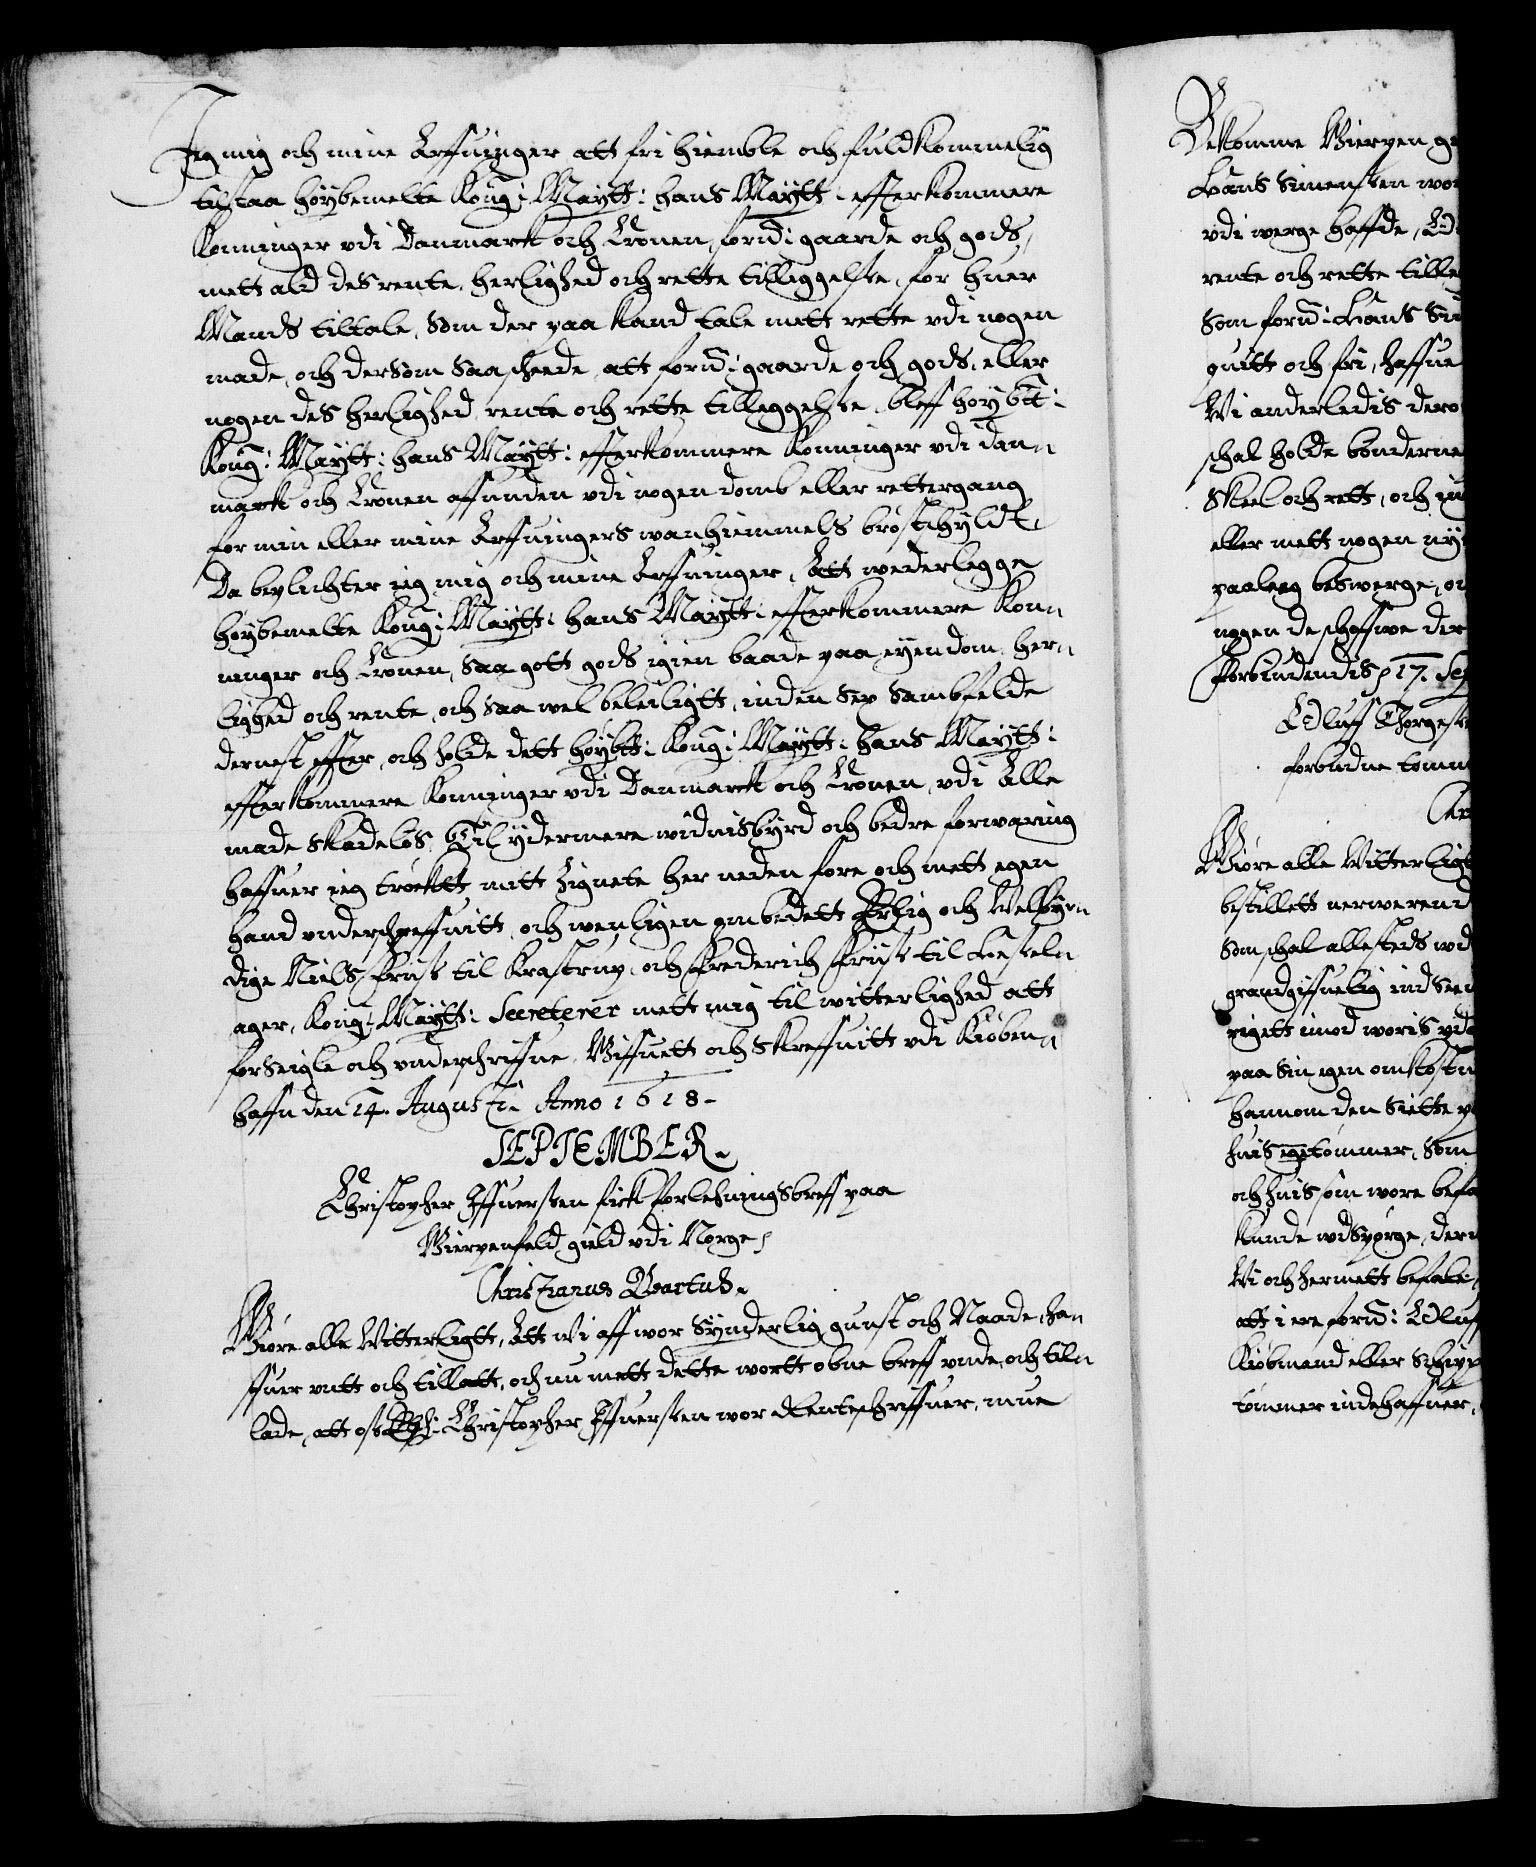 Jeg mig och mine Arffuinger att fri hiemble och fuldkommelig
tilstaa høybemelte Kong: Maytt: hans Maytt: efterkommere
Konninger vdi Danmark och Cronen, fornd: gaarde och gods,
mett ald des rente, herlighed och rette tilliggelse, for huer
Mands tiltale, som der paa kand tale mett rette vdi nogen
made, och dersom saa scheede, att fornd: gaarde och gods, eller
nogen des herlighed, rente och rette tilleggelse, bleff høybte:
Kong: Maytt: hans Maytt: efterkommere Konninger vdi Dan-
mark och Cronen affunden vdi nogen domb eller rettergang
for min eller mine Arffuingers wanhiemmels brøst schyldt,
Da beplichter ieg mig och mine Arffuinger, Att wederlegge
høybemelte Kong: Maytt: hans Maytt: efterkommere Kon-
ninger och Cronen, saa gott gods igien baade paa eyendom, her-
lighed och rente, och saa wel beleiligtt, inden sex sambfelde
dernest effter, och holde dett høybte: Kong: Maytt: hans Maytt:
efterkommere Konninger vdi Danmarck och Cronen, vdi Alle
made skadeløs, Til ydermere widnisbyrd och bedre forwaring
haffuer ieg trøcktt mitt Zignete her neden fore och mett egen
hand vnderschreffuitt, och wenligen ombedett Erlig och Welbyr-
dige Niels Friis til Krastrup, och Frederich Friis til Hesseln
ager, Kong: Maytt: Secreterer mett mig til witterlighed att
forseigle och vnderschriffue, Giffuett och Skreffuitt vdi Kiøben-
haffn den 14. Augusti. Anno 1618.
SEPTEMBER.
Christopher Iffuersen fick forlehningsbreff paa
Wierpenfeld gield vdi Norge,
Christianus Quartus.
Giøre alle Witterligtt, Att wi aff wor synderlig gunst och Naade, ha-
ffuer vntt och tillatt, och nu mett dette wortt obne breff vnde, och til-
lade, att oss Elsk: Christopher Iffuersen wor Renteschriffuer, mue
Bekomme Wierpen
Hans Simensen
vdi werge haffde,
rente och rette
Som fornd: Hans
quitt och fri, haffue
Wi anderledis
schal holde bønderne
Skeel och rett, och
eller mett nogen
paaleg beswerge,
nogen de schoffue der
Forbiudendis, 17.
Oluff
forbudne
Giøre alle Witterligt
bestillett
Som schal allesteds
grandgiffuelig
rigett imod woris
paa sin egen
hannom den siette
huis tømmer, som
och huis som wore
kunde wdspørge,
Wi och hermett befale,
att i ere fornd: Oluff
Kiøbmand eller
tømmer inde haffuer,